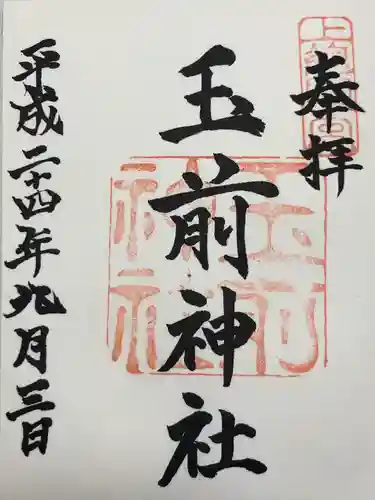 奉拝
玉前神社
平成二十四年九月三日
玉前神社